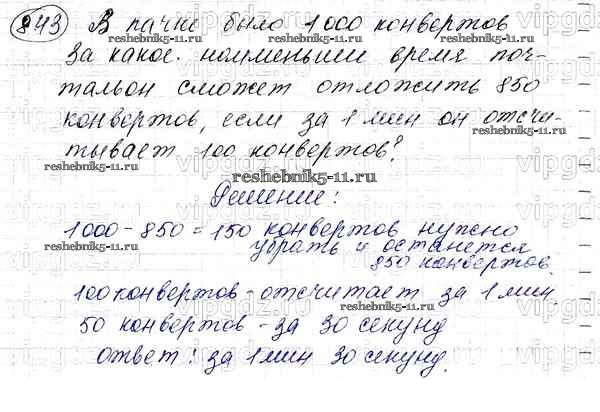 843 В пачке было 1000 конвертов
За какое наименьшии время поч-
тальон сможет отложить 850
конвертов, если за 1 мин он отсчи-
тывает 100 конвертов?
reshebnik5-11.ru
Решение:
1000 - 850 = 150 конвертов нужно
убрать и останется
850 конвертов.
100 конвертов - отсчитает за 1 мин.
50 конвертов - за 30 секунд
ответ: за 1 мин 30 секунд.